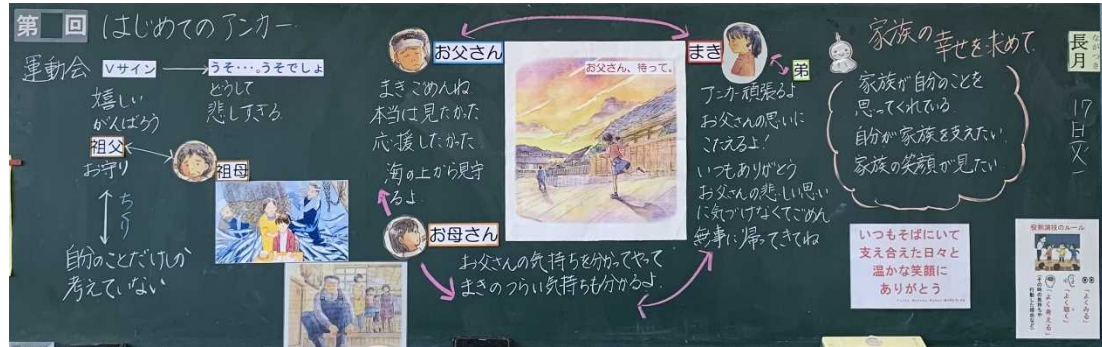 第 回
はじめてのアンカー
運動会
Vサイン
うそ・・・。うそでしょ
嬉しい
がんばろう
どうして
悲しすぎる
祖父
お守り
祖母
ちくり
自分のことだけしか
考えていない
お父さん
まきごめんね
本当は見たかった
応援したかった
海の上から見守
るよ
お母さん
お父さんの気持ちを分かってやって
まきのつらい気持ちも分かるよ
お父さん、待って。
まき
弟
アンカー頑張るよ
お父さんの思いに
こたえるよ!
いつもありがとう
お父さんの悲しい思い
に気づけなくてごめん
無事に帰ってきてね
家族の幸せを求めて
家族が自分のことを
思ってくれている
自分が家族を支えたい
家族の笑顔が見たい
いつもそばにいて
支え合えた日々と
温かな笑顔に
ありがとう
長月
ながつき
17日(火)
役割演技のルール
「よくみる」
「よく聴く」
「よく考える」